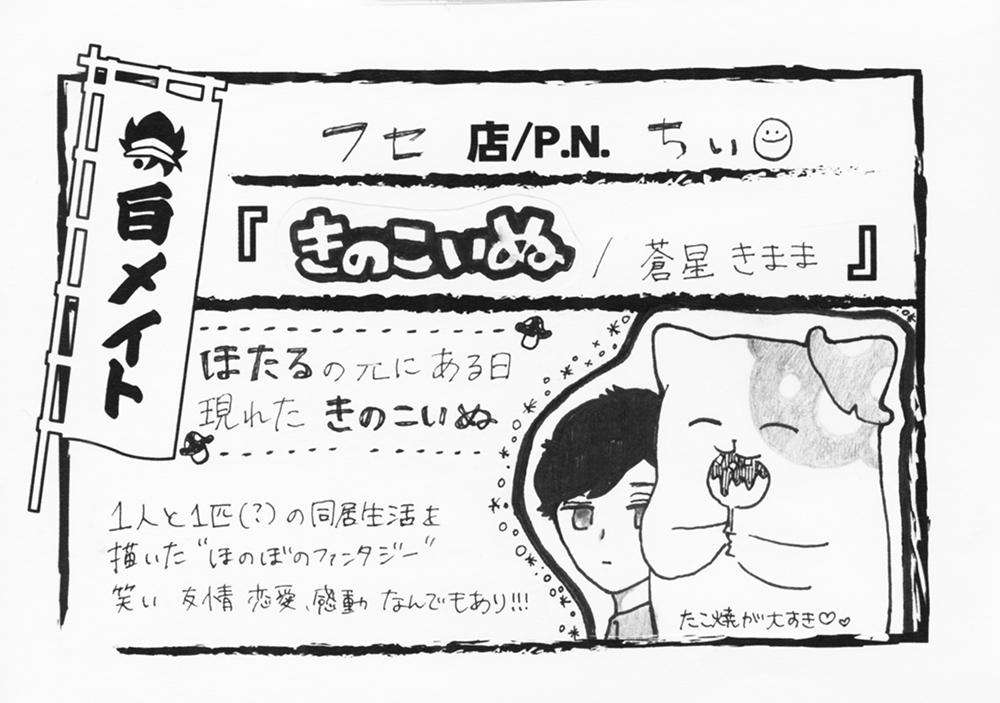 百メイト
フセ 店/P.N. ちぃ
『きのこいぬ / 蒼星きまま』
ほたるの元にある日
現れた きのこいぬ
1人と1匹(?)の同居生活を
描いた"ほのぼのファンタジー"
笑い 友情 恋愛、感動 なんでもあり!!!
たこ焼が大すき♡♡